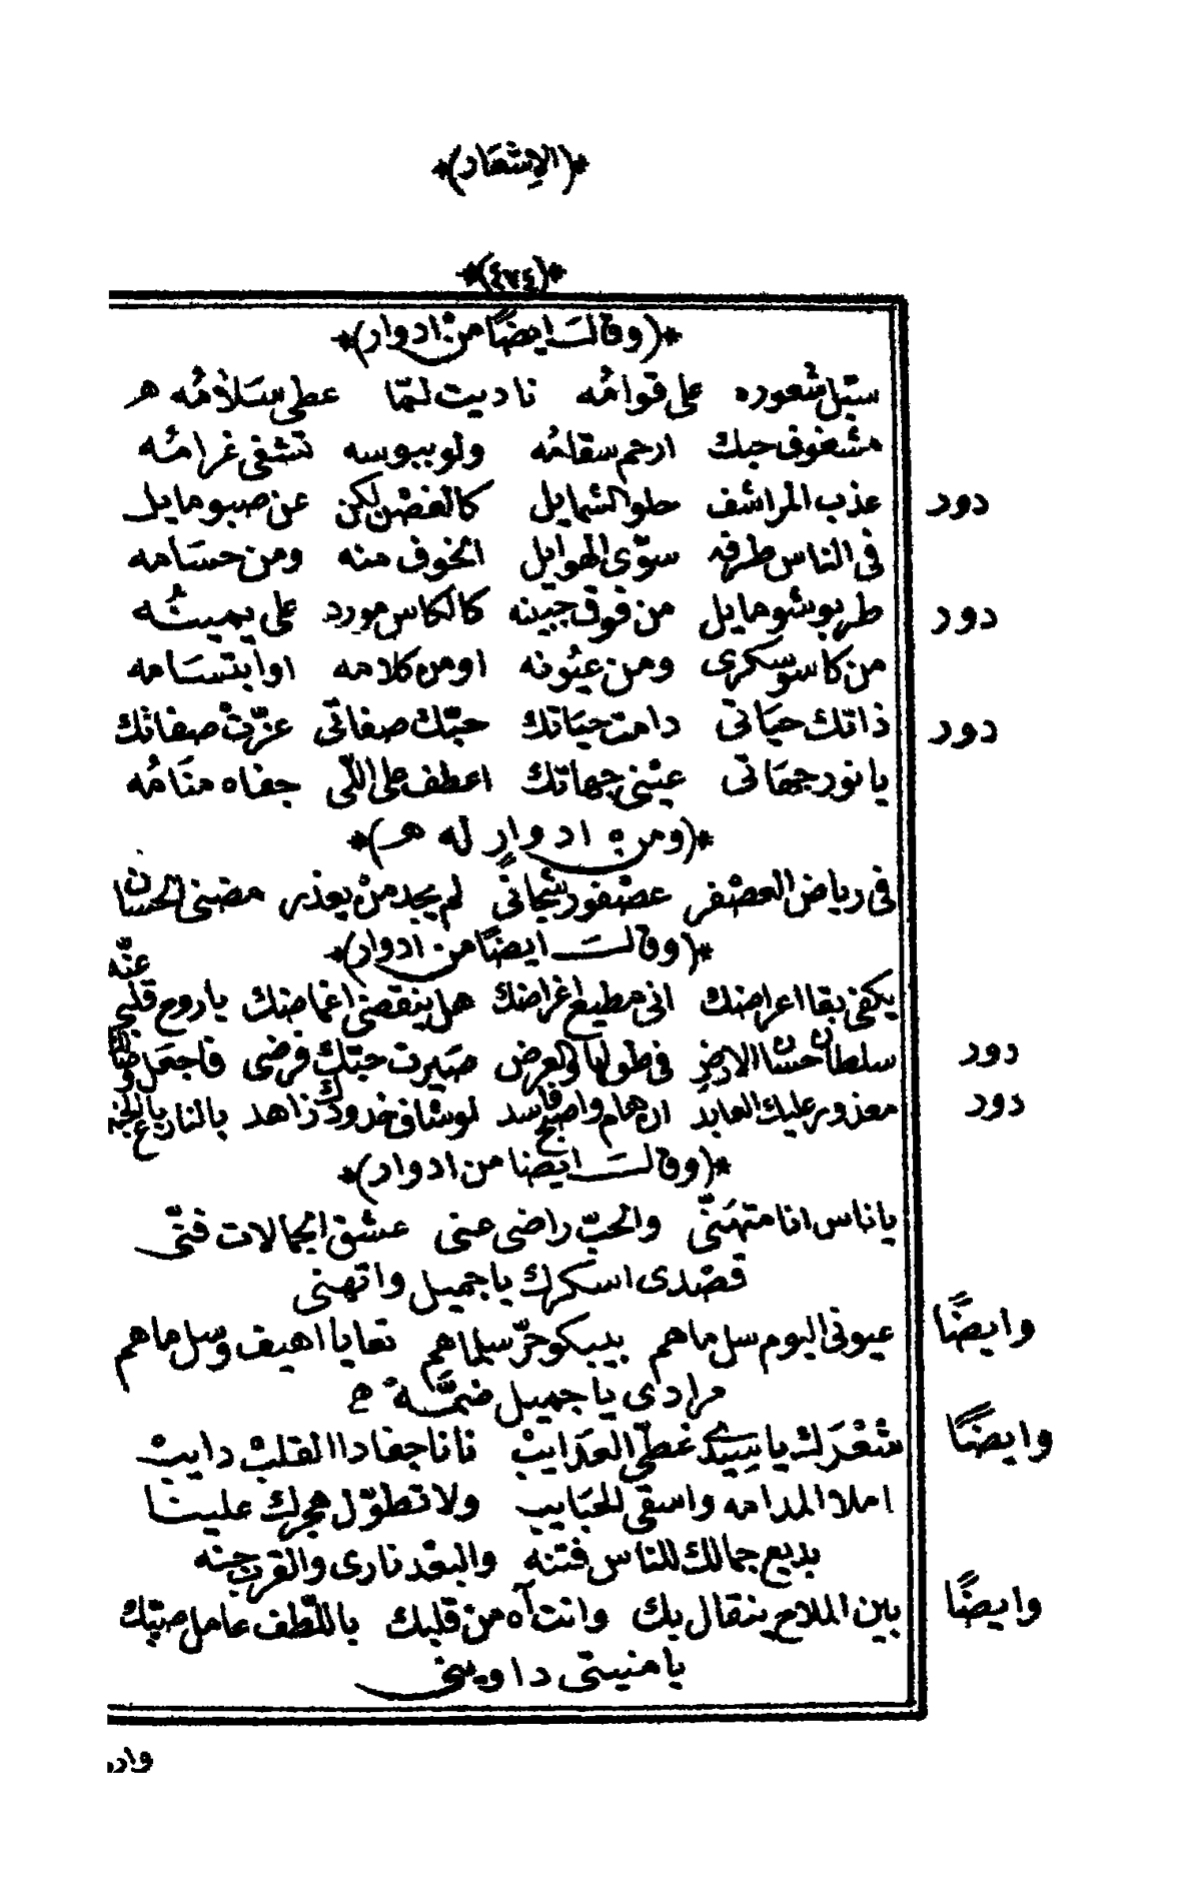 *(الاشعار)*
*(٤٧٤)*
*(وقالت ايضًا من ادوار)*
ستبل شعوره على قوامُه ناديت لمّا عطى سَلامُه ه
مشغوف حبك ارحم سقامُه ولو ببوسه تشفى غرامُه
دور عذب المراشف حلو الشمايل كالغصْن لكن عن صبو مايل
فى الناس طرفه سوّى الهوايل الخوف منه ومن حسَامه
دور طربوشو مايل من فوق جبينه كالكاس مورد على يمينُه
من كاسو سكرى ومن عيُونه او من كلامه او ابتسَامه
دور ذاتك حيَاتى دامت حيَاتك حبّك صفاتى عزّتْ صفاتك
يا نور جهَاتى عيْنى جهاتك اعطف على اللّى جفاه منَامُه
*(ومن ادوار له ه)*
فى رياض العصْفر عصْفور شجانى لم يجد منْ يعذر مضنى الحسَان
*(وقالت ايضًا من ادوار)*
يكفى بقا اعراضك انى مطيع اغراضك هل ينقضى اغماضك يا روح قلبى عنّه
دور سلطان حسْن الارض فى طولها والعرض صَيرت حبّك فرضى فاجعل
دور معذور عليك العابد ان هام واصبح فاسد لو شاف خدودك زاهد بالنار باع الجنه
*(وقالت ايضا من ادوار)*
يا ناس انا متهَنّى والحبّ راضى عنى عشق الجمالات فنّى
قصْدى اسكرك يا جميل واتهنى
وايضًا عيونى اليوم سل ماهم بيبكو حرّ سيلماهم تعا يا اهيف وسل ماهم
مرادى يا جميل ضمَّة ه
وايضًا شعْرَك يا سِيدى غطّى العصَايبْ نا نا جفا دا القلبْ دايبْ
املا المدامه واسقى للحبَايب ولا تطوّل هجرك علينا
بديع جمالك للناس فتنه والبعْد نارى والقرب جنه
وايضًا بين الملاح ينقال بك وانت آه من قلبك باللّطف عامل صبّك
يا منيتى داوينى